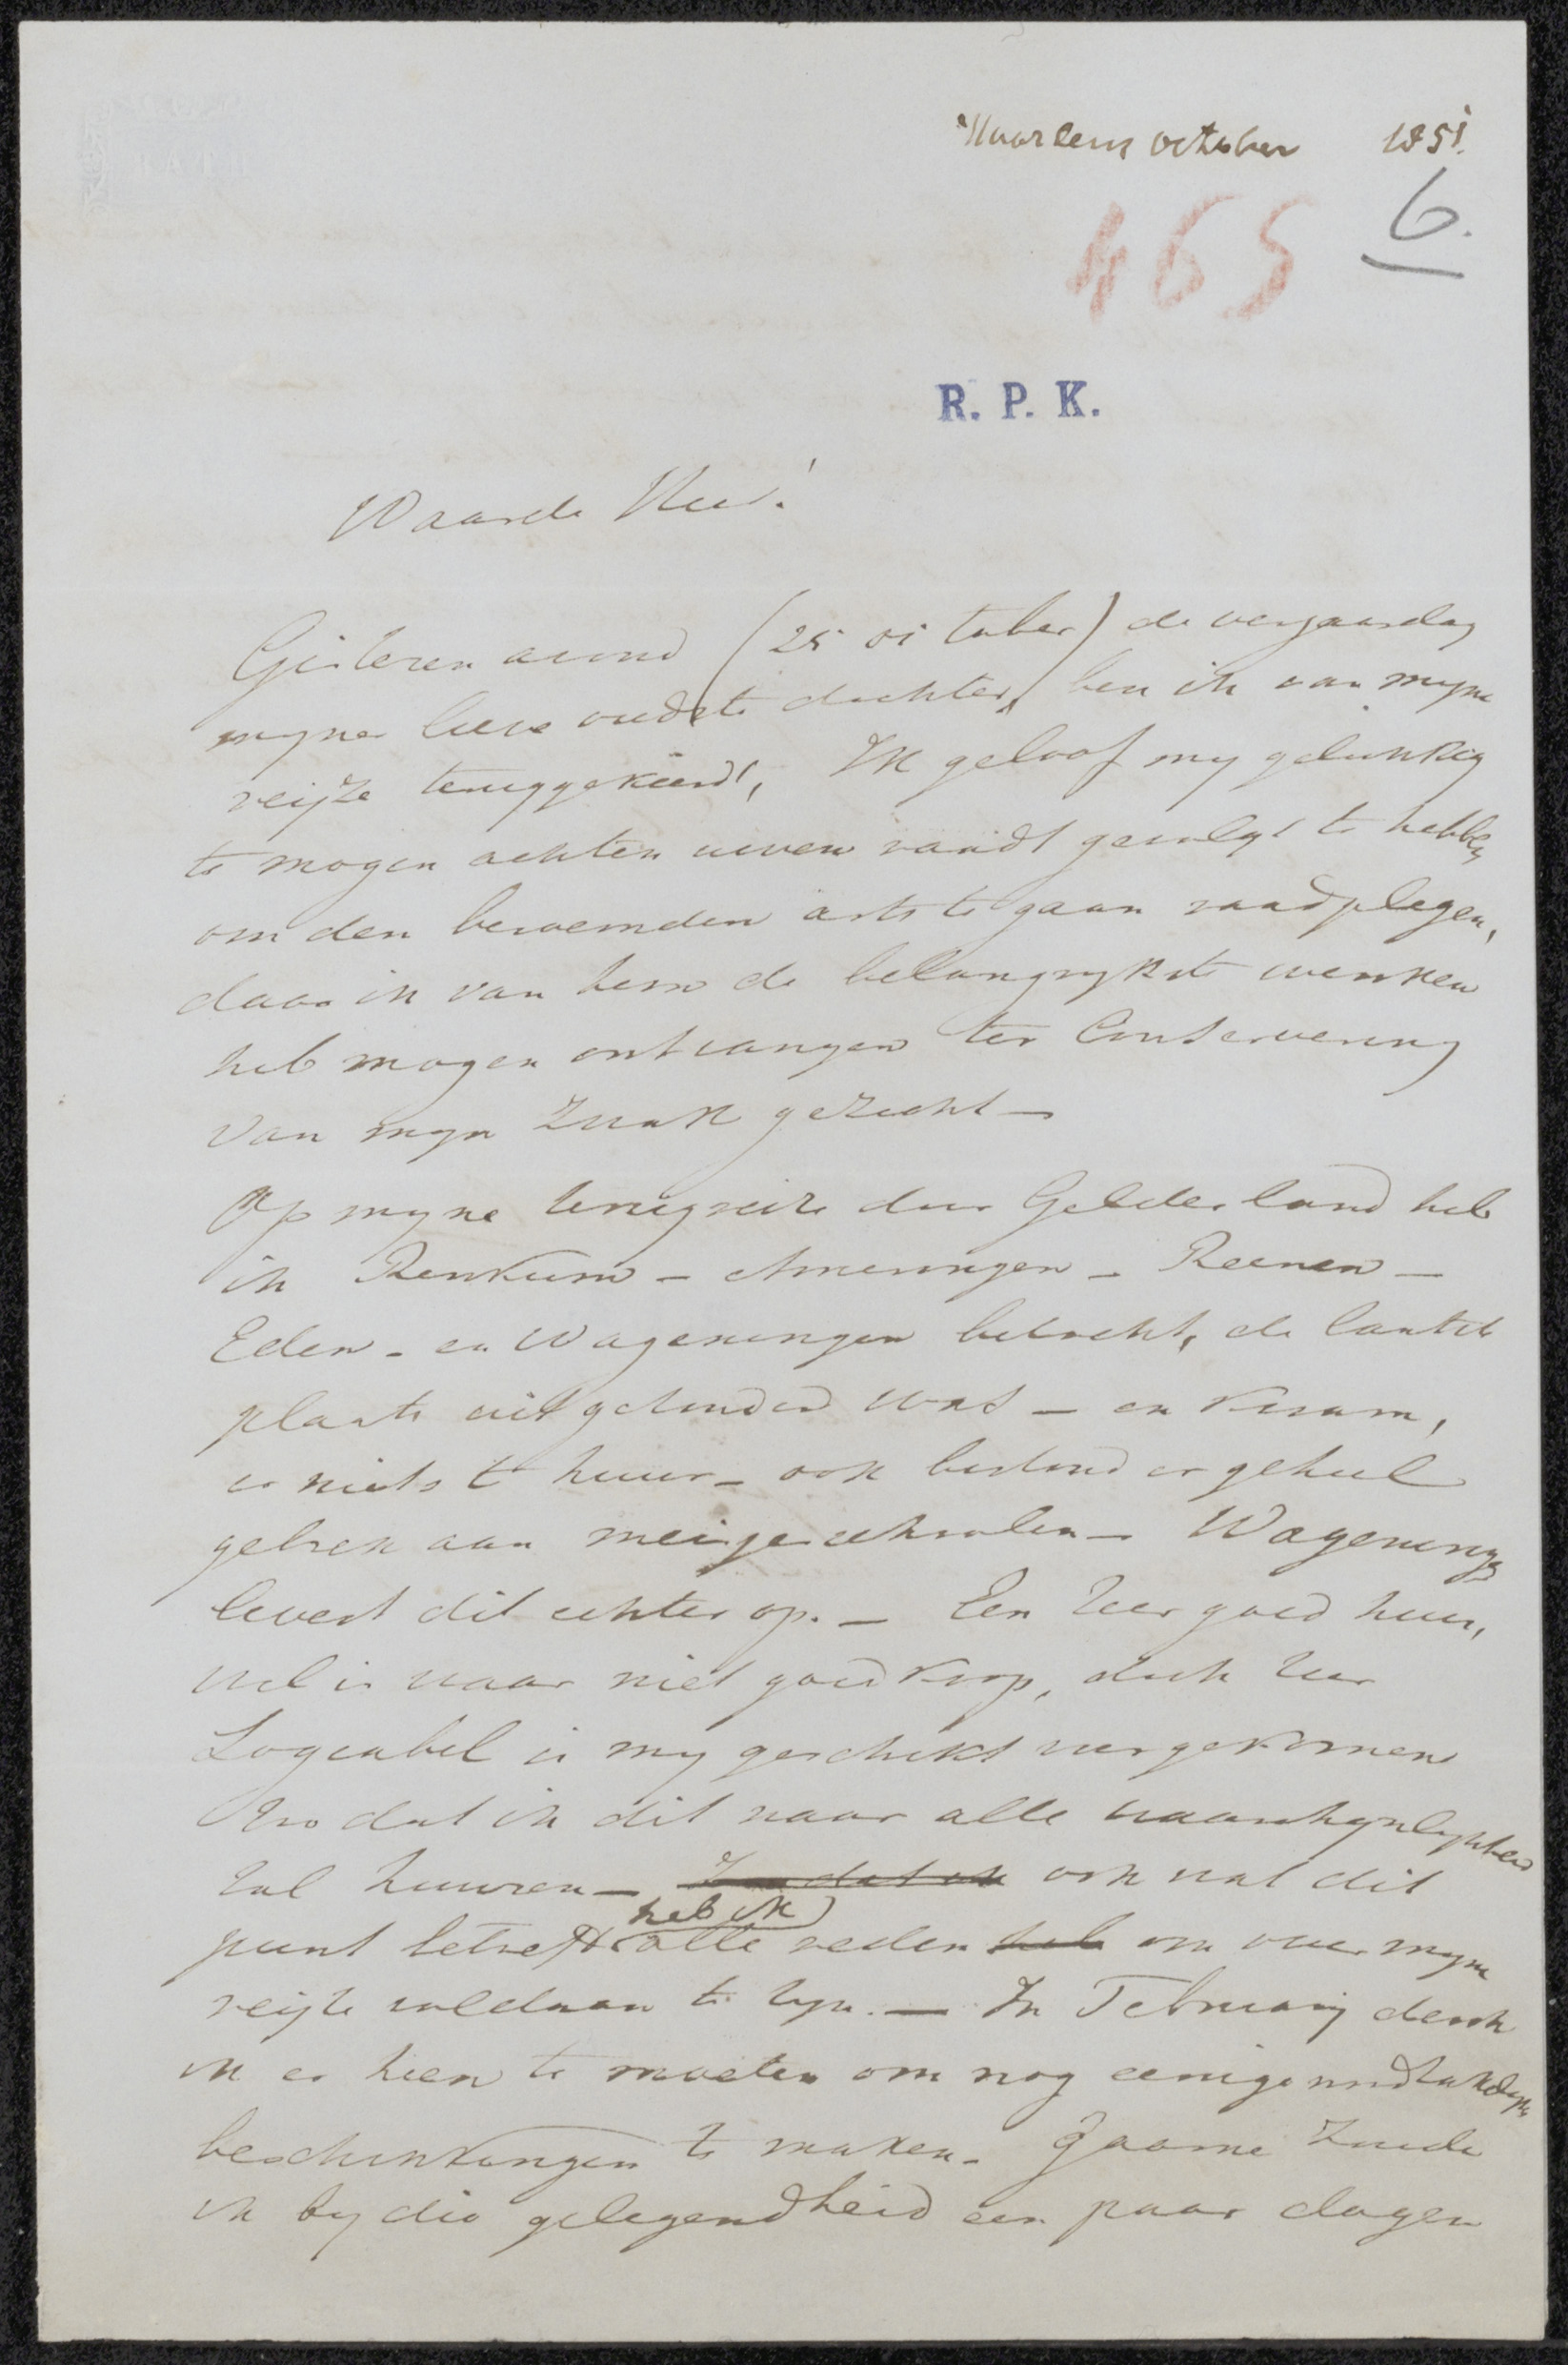 Haarlem october 1851.
465 6.
R. P. K.
Waarde Heer!
Gisteren avond (25 october) de verjaardag
myner lieve oudste dochter, ben ik van myne
reijze teruggekeerd, Ik geloof my gelukkig
te mogen achten uwen raadt gevolgt te hebben
om den beroemden arts te gaan raadplegen,
daar ik van hem de belangrykste wenken
heb mogen ontvangen ter Conservering
van myn zwak gezicht -
Op myne terugreize door Gelderland heb
ik Renkum - Ameringen - Reenen -
Eden - en Wageningen bezocht, de laatste
plaats uitgezonderd was - en kwam,
er niets te huur - ook bestond er geheel
gebrek aan meisjesschoolen - Wageningen
levert dit echter op. - Een zeer goed huis,
wel is waar niet goedkoop, doch zeer
Logeabel is my geschikt voorgekomen
zoo dat ik dit naar alle waarschynlykheid
zal huuren - Zoo dat ik ook wat dit
punt betreft heb ik alle reden heb om over myne
reijze voldaan te zyn. - In Februarij denk
ik er heen te moeten om nog eenige noodzakelyke
beschikkingen te maken. Gaarne zoude
ik by die gelegendheid een paar dagen